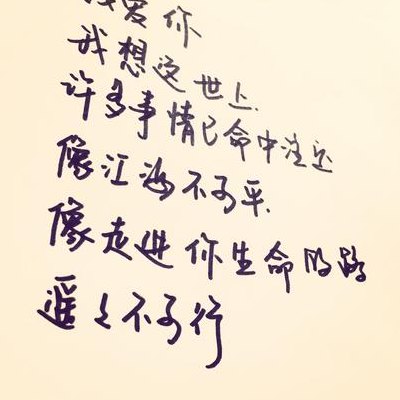 我爱你
我想这世上.
许多事情已命中注定
像江海不可平.
像走进你生命的路
遥遥不可行